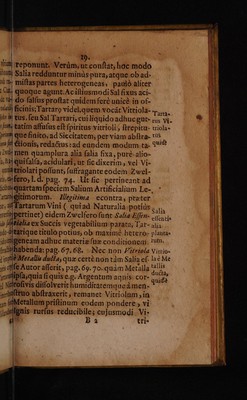 19.
reponunt. Verùm, ut constat, hoc modo
Salia redduntur minus pura, atque ob ad-
mistas partes heterogeneas, paolò aliter
quoque agunt. Ac istiusmodi Sal fixus aci-
do falsius prostat quidem ferè unicè in of-
ficinis; Tartarº videl. quem vocât Vitriola-
tus, seu Sal Tartari, cui liquido adhuc gut-
tatim affusus est spiritus vitrioli, strepitu-
que finito, ad siccitatem, per viam abstra-
ctionis, redactus: ad eundem modum ta-
men quamplura alia salia fixa, purè-alio-
quisalia, acidulari, ut sic dixerim, vel Vi-
triolari possunt, suffragante eodem Zwel-
fero, l. d. pag. 74. Ut sic pertineant ad
quartam speciem Salium Artificialium Le-
gitimorum. Illegitima econtra, præter
Tartarum Vini (qui ad Naturalia potiùs
pertinet) eidem Zwelfero sunt Salia Essen-
tialia ex Succis vegetabilium parata, Tar-
tarique titulo potius, ob maximè hetero-
geneam adhuc materiæ suæ conditionem,
habenda: pag. 67. 68. Nec non Vitriola
è Metallis ducta, quæ certè non tàm Salia es-
se Autor asserit, pag. 69. 70. quàm Metalla
ipsa, quia si quis e. g. Argentum aquis cor-
rosivis dissolverit humiditatemque à men-
struo abstraxerit, remanet Vitriolum, in
Metallum pristinum eodem pondere, vi
ignis rursus reducibile; cujusmodi Vi-
B 2
tri-
Tarta-
rus Vi-
triola-
tus
quid?
Salia
essenti-
alia
planta-
rum.
Vitrio-
la è Me
tallis
ducta,
qualia